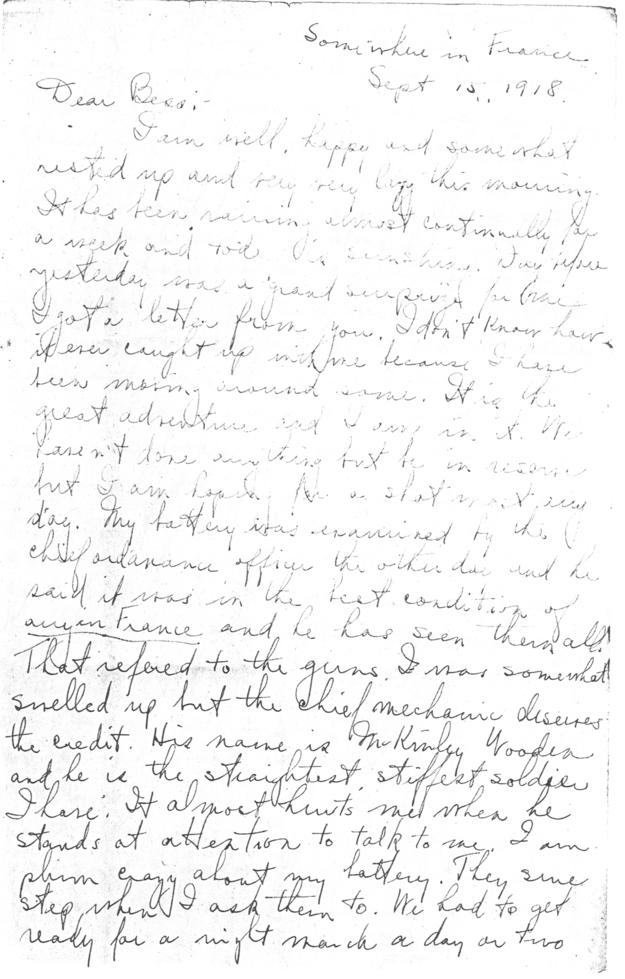 Somewhere in France
Sept 15, 1918.
Dear Bess:-
I am well, happy and somewhat
rested up and very very lazy this morning.
It has been raining almost continually for
a week and is sunshine. Day before
yesterday was a grand surprize for me
I got a letter from you. I don't know how
it ever caught up with me because I have
been moving around some. It is the
great adventure and I am in it. We
haven't done anything but be in reserve
but I am hoping for a shot most any
day. My battery was examined by the
chief ordanance officer the other day and he
said it was in the best condition of
any in France and he has seen them all.
That refered to the guns. I was somewhat
swelled up but the chief mechanic deserves
the credit. His name is McKinley Wooden
and he is the straightest, stiffest soldier
I have. It almost hurts me when he
stands at attention to talk to me. I am
plum crazy about my battery. They sure
step when I ask them to. We had to get
ready for a night march a day or two